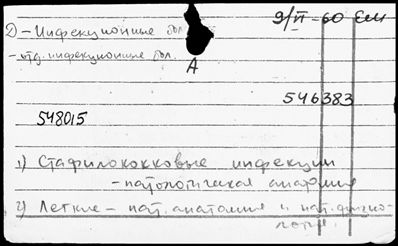 Д - Инфекционные бол.
9/II-60 ЕМ
- отд. инфекционные бол.
А
546383
548015
1) Стафилококковые инфекции
- патологическая анатомия
2) Легкие - пат. анатомия и пат. физио-
логия.